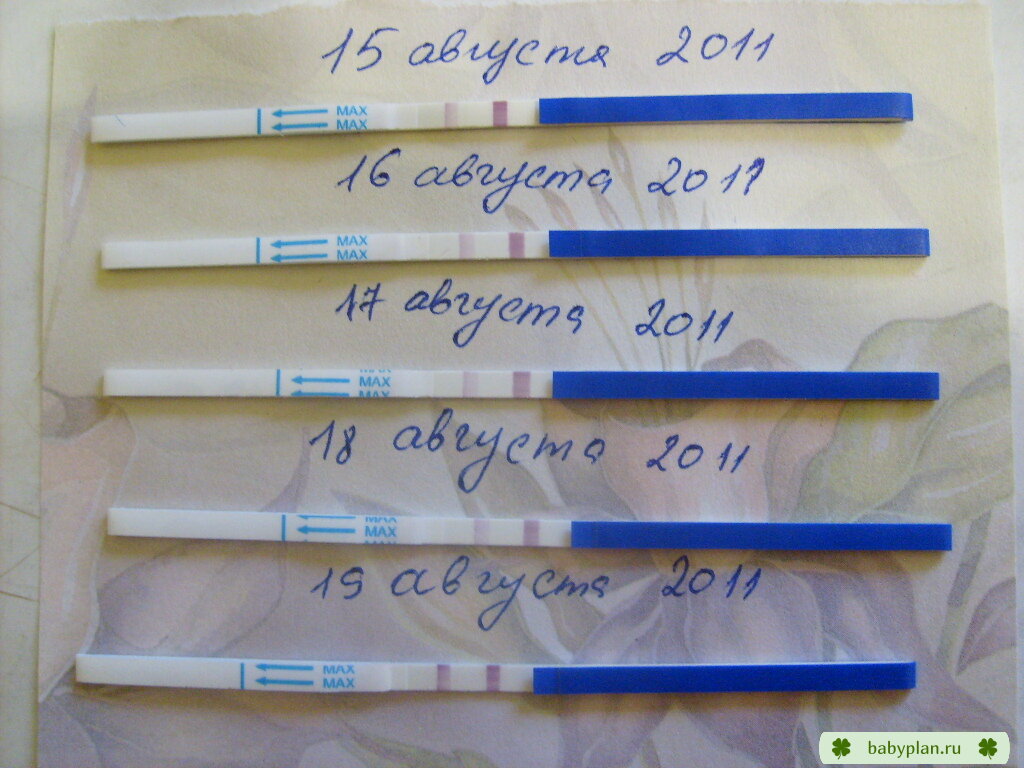 15 августа 2011
MAX
MAX
16 августа 2011
MAX
MAX
17 августа 2011
MAX
MAX
MAX
18 августа 2011
MAX
MAX
MAX
19 августа 2011
MAX
MAX
babyplan.ru